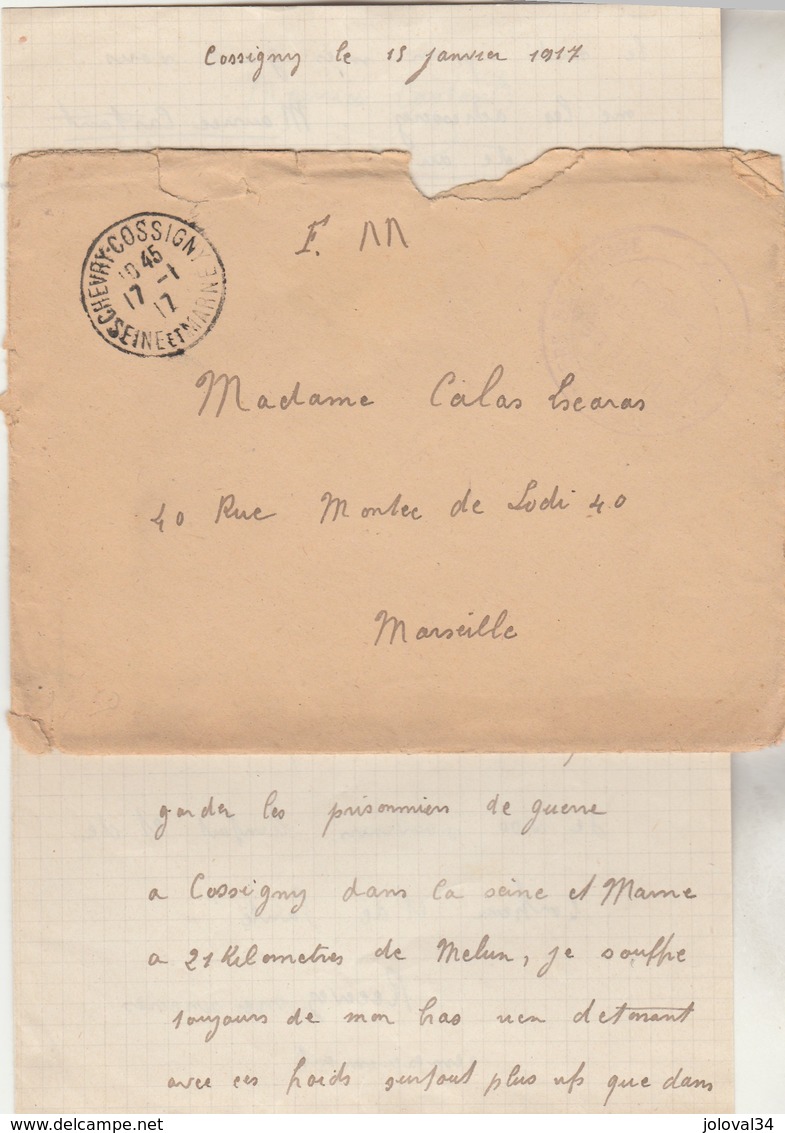 Cossigny le 15 janvier 1917
CHEVRY-COSSIGNY
10 45
17 -1
17
SEINE ET MARNE
F. M
Madame Calas Escaras
40 Rue Montee de Lodi 40
Marseille
garder les prisonniers de guerre
a Cossigny dans la seine et Marne
a 21 Kilometres de Melun, je souffre
toujours de mon bras rien d'etonant
avec ces froids surtout plus que dans
joloval34